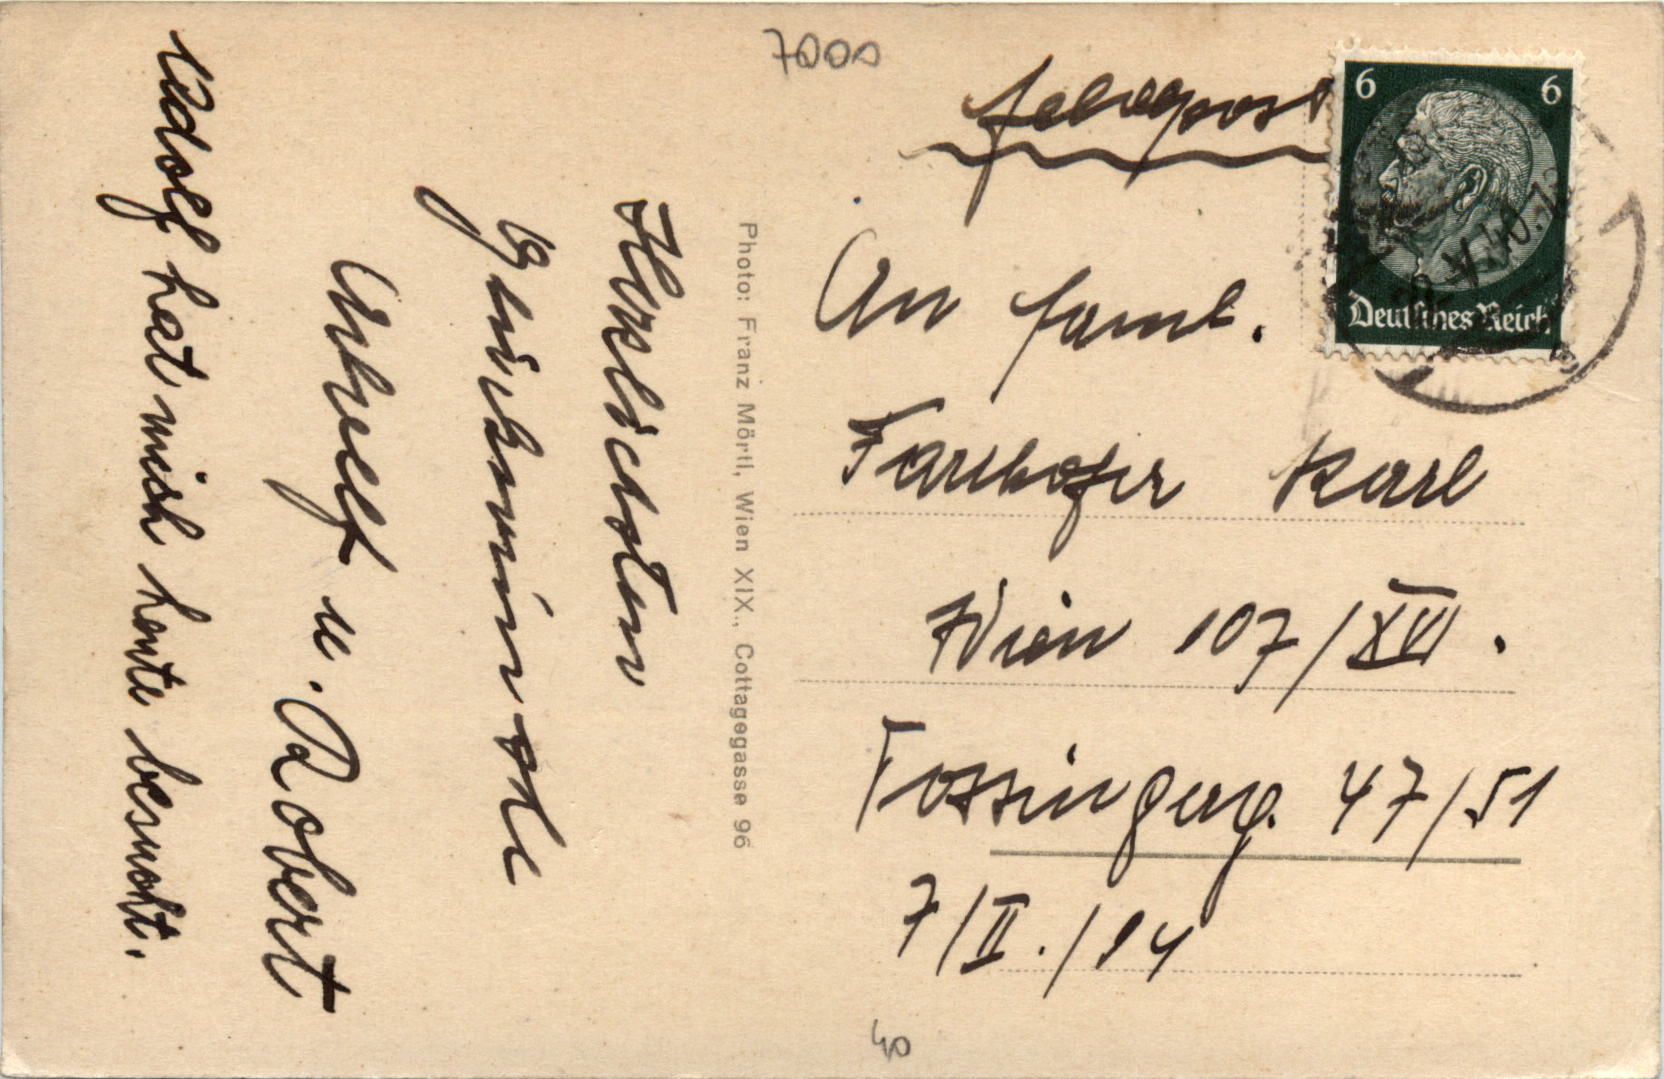 Herzlichsten
Glückwünsche
u. Robert
Adolf hat mich heute besucht.
Photo: Franz Mörtl, Wien XIX., Cottagegasse 96
7000
Feldpost
6 6
Deutsches Reich
An Faml.
Karl
Wien 107/XVI.
47/51
7/II./14
40